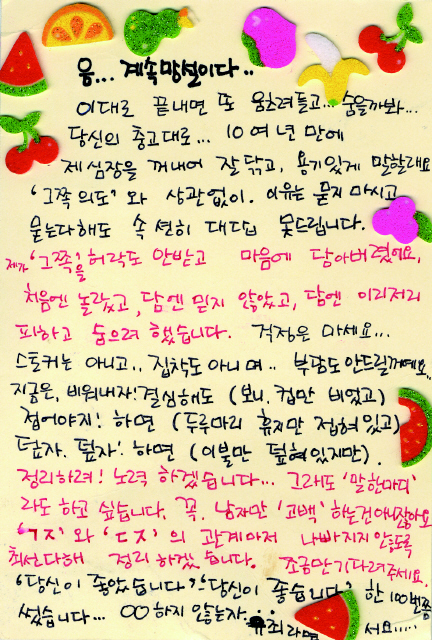 음... 계속 망설이다..
이대로 끝내면 또 움츠려들고... 숨을까봐...
당신의 충고대로... 10여년 만에
제 심장을 꺼내어 잘 닦고, 용기있게 말할래요
'그쪽 의도'와 상관없이. 이유는 묻지 마시고
묻는다해도 속 션히 대답 못드립니다.
제가 '그쪽'을 허락도 안받고 마음에 담아버렸어요.
처음엔 놀랐고, 담엔 믿지 않았고, 담엔 이리저리
피하고 숨으려 했습니다. 걱정은 마세요...
스토커는 아니고.. 집착도 아니며.. 부담도 안드릴께예요..
지금은, 비워내자! 결심해도 (보니, 컵만 비었고)
접어야지! 하면 (두루마리 휴지만 접혀있고)
덮자. 덮자! 하면 (이불만 덮혀있지만).
정리하려! 노력 하겠습니다... 그래도 '말한마디'
라도 하고 싶습니다. 꼭, 남자만 '고백' 하는건아니잖아요
"ㄱㅈ'와 'ㄷㅈ'의 관계마저 나빠지지않도록
최선다해 정리하겠습니다. 조금만기다려주세요.
"당신이 좋았습니다" "당신이 좋습니다" 한 100번쯤
썼습니다... ○○하지 않는자